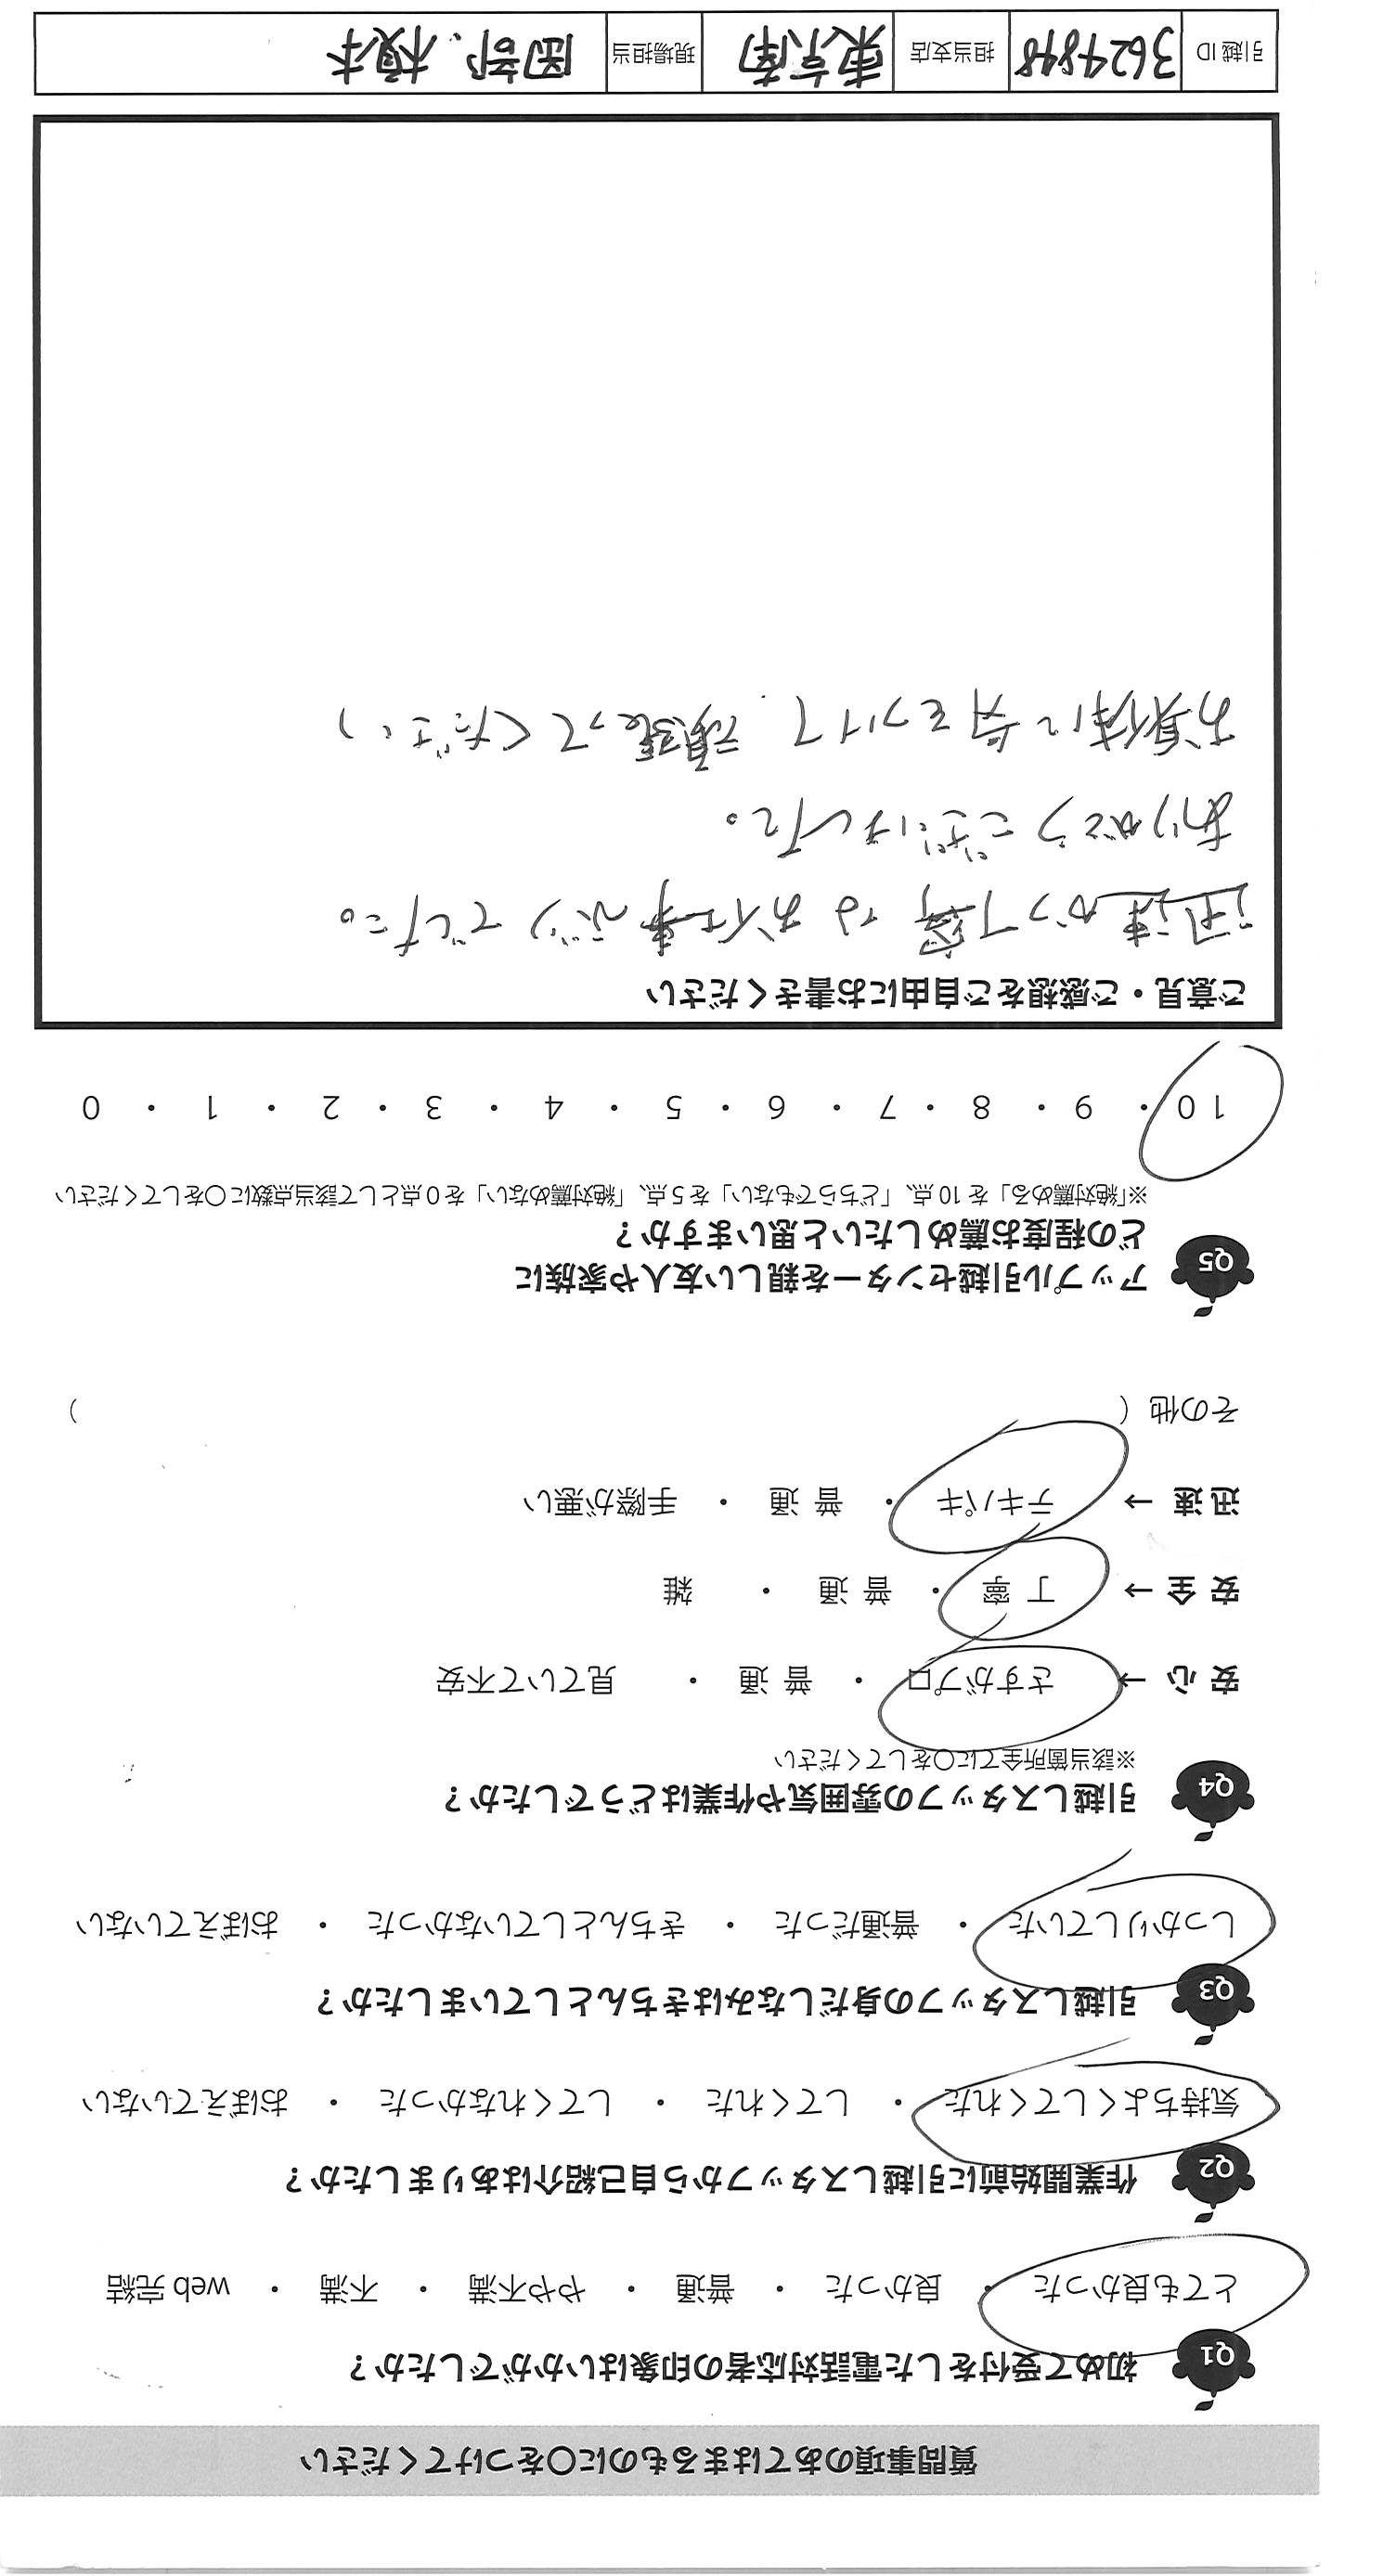 質問事項のあてはまるものに○をつけてください
Q1 初めて受付をした電話対応者の印象はいかがでしたか？
とても良かった ・ 良かった ・ 普通 ・ やや不満 ・ 不満 ・ web 完結
Q2 作業開始前に引越しスタッフから自己紹介はありましたか？
気持ちよくしてくれた ・ してくれた ・ してくれなかった ・ おぼえていない
Q3 引越しスタッフの身だしなみはきちんとしていましたか？
しっかりしていた ・ 普通だった ・ きちんとしていなかった ・ おぼえていない
Q4 引越しスタッフの雰囲気や作業はどうでしたか？
※該当箇所全てに○をしてください
安心 → さすがプロ ・ 普通 ・ 見ていて不安
安全 → 丁寧 ・ 普通 ・ 雑
迅速 → テキパキ ・ 普通 ・ 手際が悪い
その他（ ）
Q5 アップル引越センターを親しい友人や家族に
どの程度お薦めしたいと思いますか？
※「絶対薦める」を 10 点、「どちらでもない」を 5 点、「絶対薦めない」を 0 点として該当点数に○をしてください
10 ・ 9 ・ 8 ・ 7 ・ 6 ・ 5 ・ 4 ・ 3 ・ 2 ・ 1 ・ 0
ご意見・ご感想をご自由にお書きください
迅速かつ丁寧なお仕事ぶりでした。
ありがとうございました。
お身体に気をつけて頑張ってください
引越 ID 3624848 担当支店 東京南 現場担当 岡部、榎本